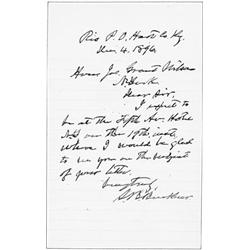 Rio P.O. Hart Co Ky.
4. 1896
Grant Wilson
N. York
Dear Sir,
I expect to
be at the Fifth Av. Hotel
on the 19th inst.
where I would be glad
to see you on the subject
of your letter.
Very truly,
S. B. Buckner